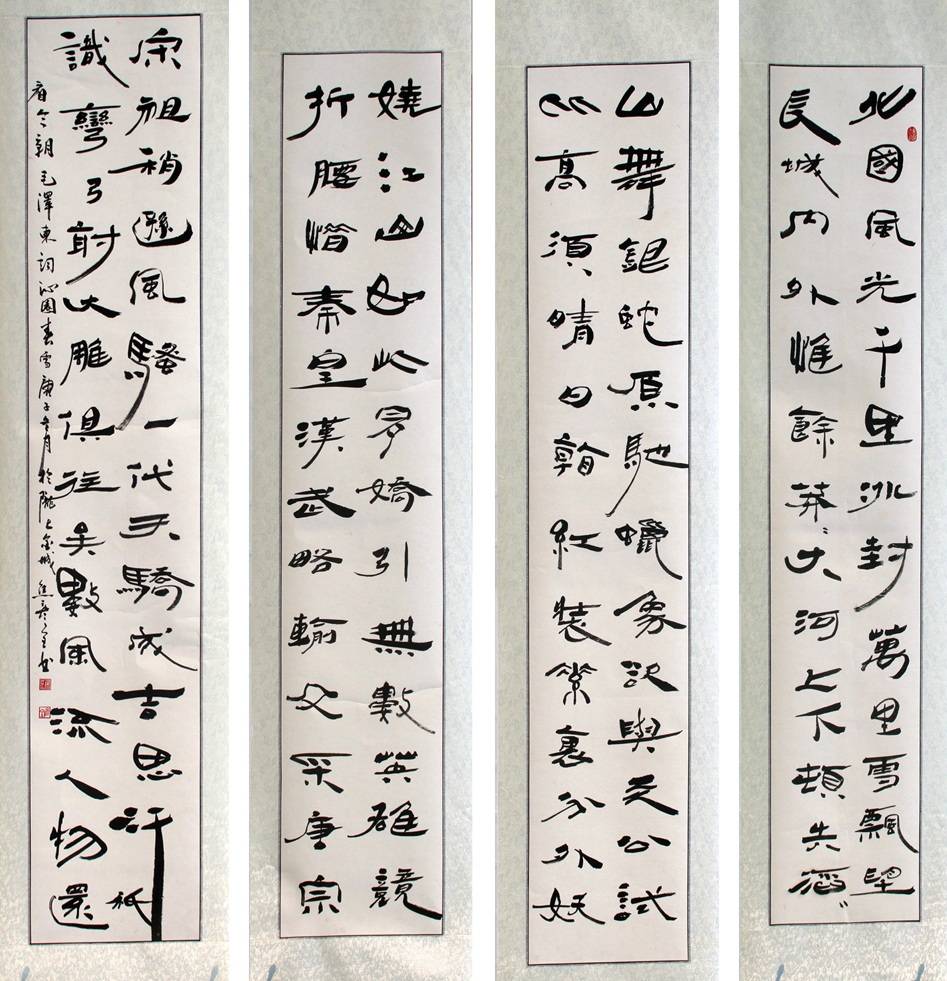 北國風光千里冰封萬里雪飄望
長城內外惟餘莽〻大河上下頓失滔〻
山舞銀蛇原馳蠟象欲與天公試
比高須晴日看紅裝素裹分外妖
嬈江山如此多嬌引無數英雄競
折腰惜秦皇漢武略輸文采唐宗
宋祖稍遜風騷一代天驕成吉思汗祇
識彎弓射大雕俱往矣數風流人物還
看今朝毛澤東詞沁園春雪庚子冬月於隴上金城焦書